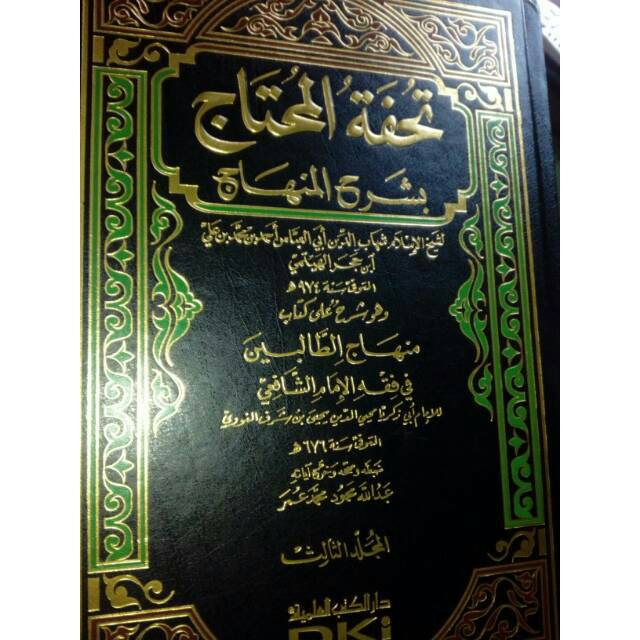 تحفة المحتاج
بشرح المنهاج
لشيخ الإسلام شهاب الدين أبي العباس أحمد بن محمد بن علي
ابن حجر الهيتمي
المتوفى سنة ٩٧٤ هـ
وهو شرح على كتاب
منهاج الطالبين
في فقه الإمام الشافعي
للإمام أبي زكريا محيي الدين يحيى بن شرف النووي
المتوفى سنة ٦٧٦ هـ
ضبطه وصححه وخرج آياته
عبدالله محمود محمد عمر
المجلد الثالث
دار الكتب العلمية
DKi